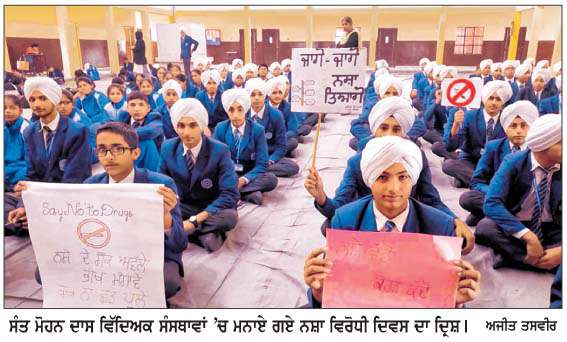 ਜਾਗੋ-ਜਾਗੋ
ਨਸ਼ਾ
ਤਿਆਗੋ
Say No to Drugs
ਨਸ਼ੇ ਦੇ ਜੋ
ਸੰਤ ਮੋਹਨ ਦਾਸ ਵਿੱਦਿਅਕ ਸੰਸਥਾਵਾਂ 'ਚ ਮਨਾਏ ਗਏ ਨਸ਼ਾ ਵਿਰੋਧੀ ਦਿਵਸ ਦਾ ਦ੍ਰਿਸ਼।
ਅਜੀਤ ਤਸਵੀਰ